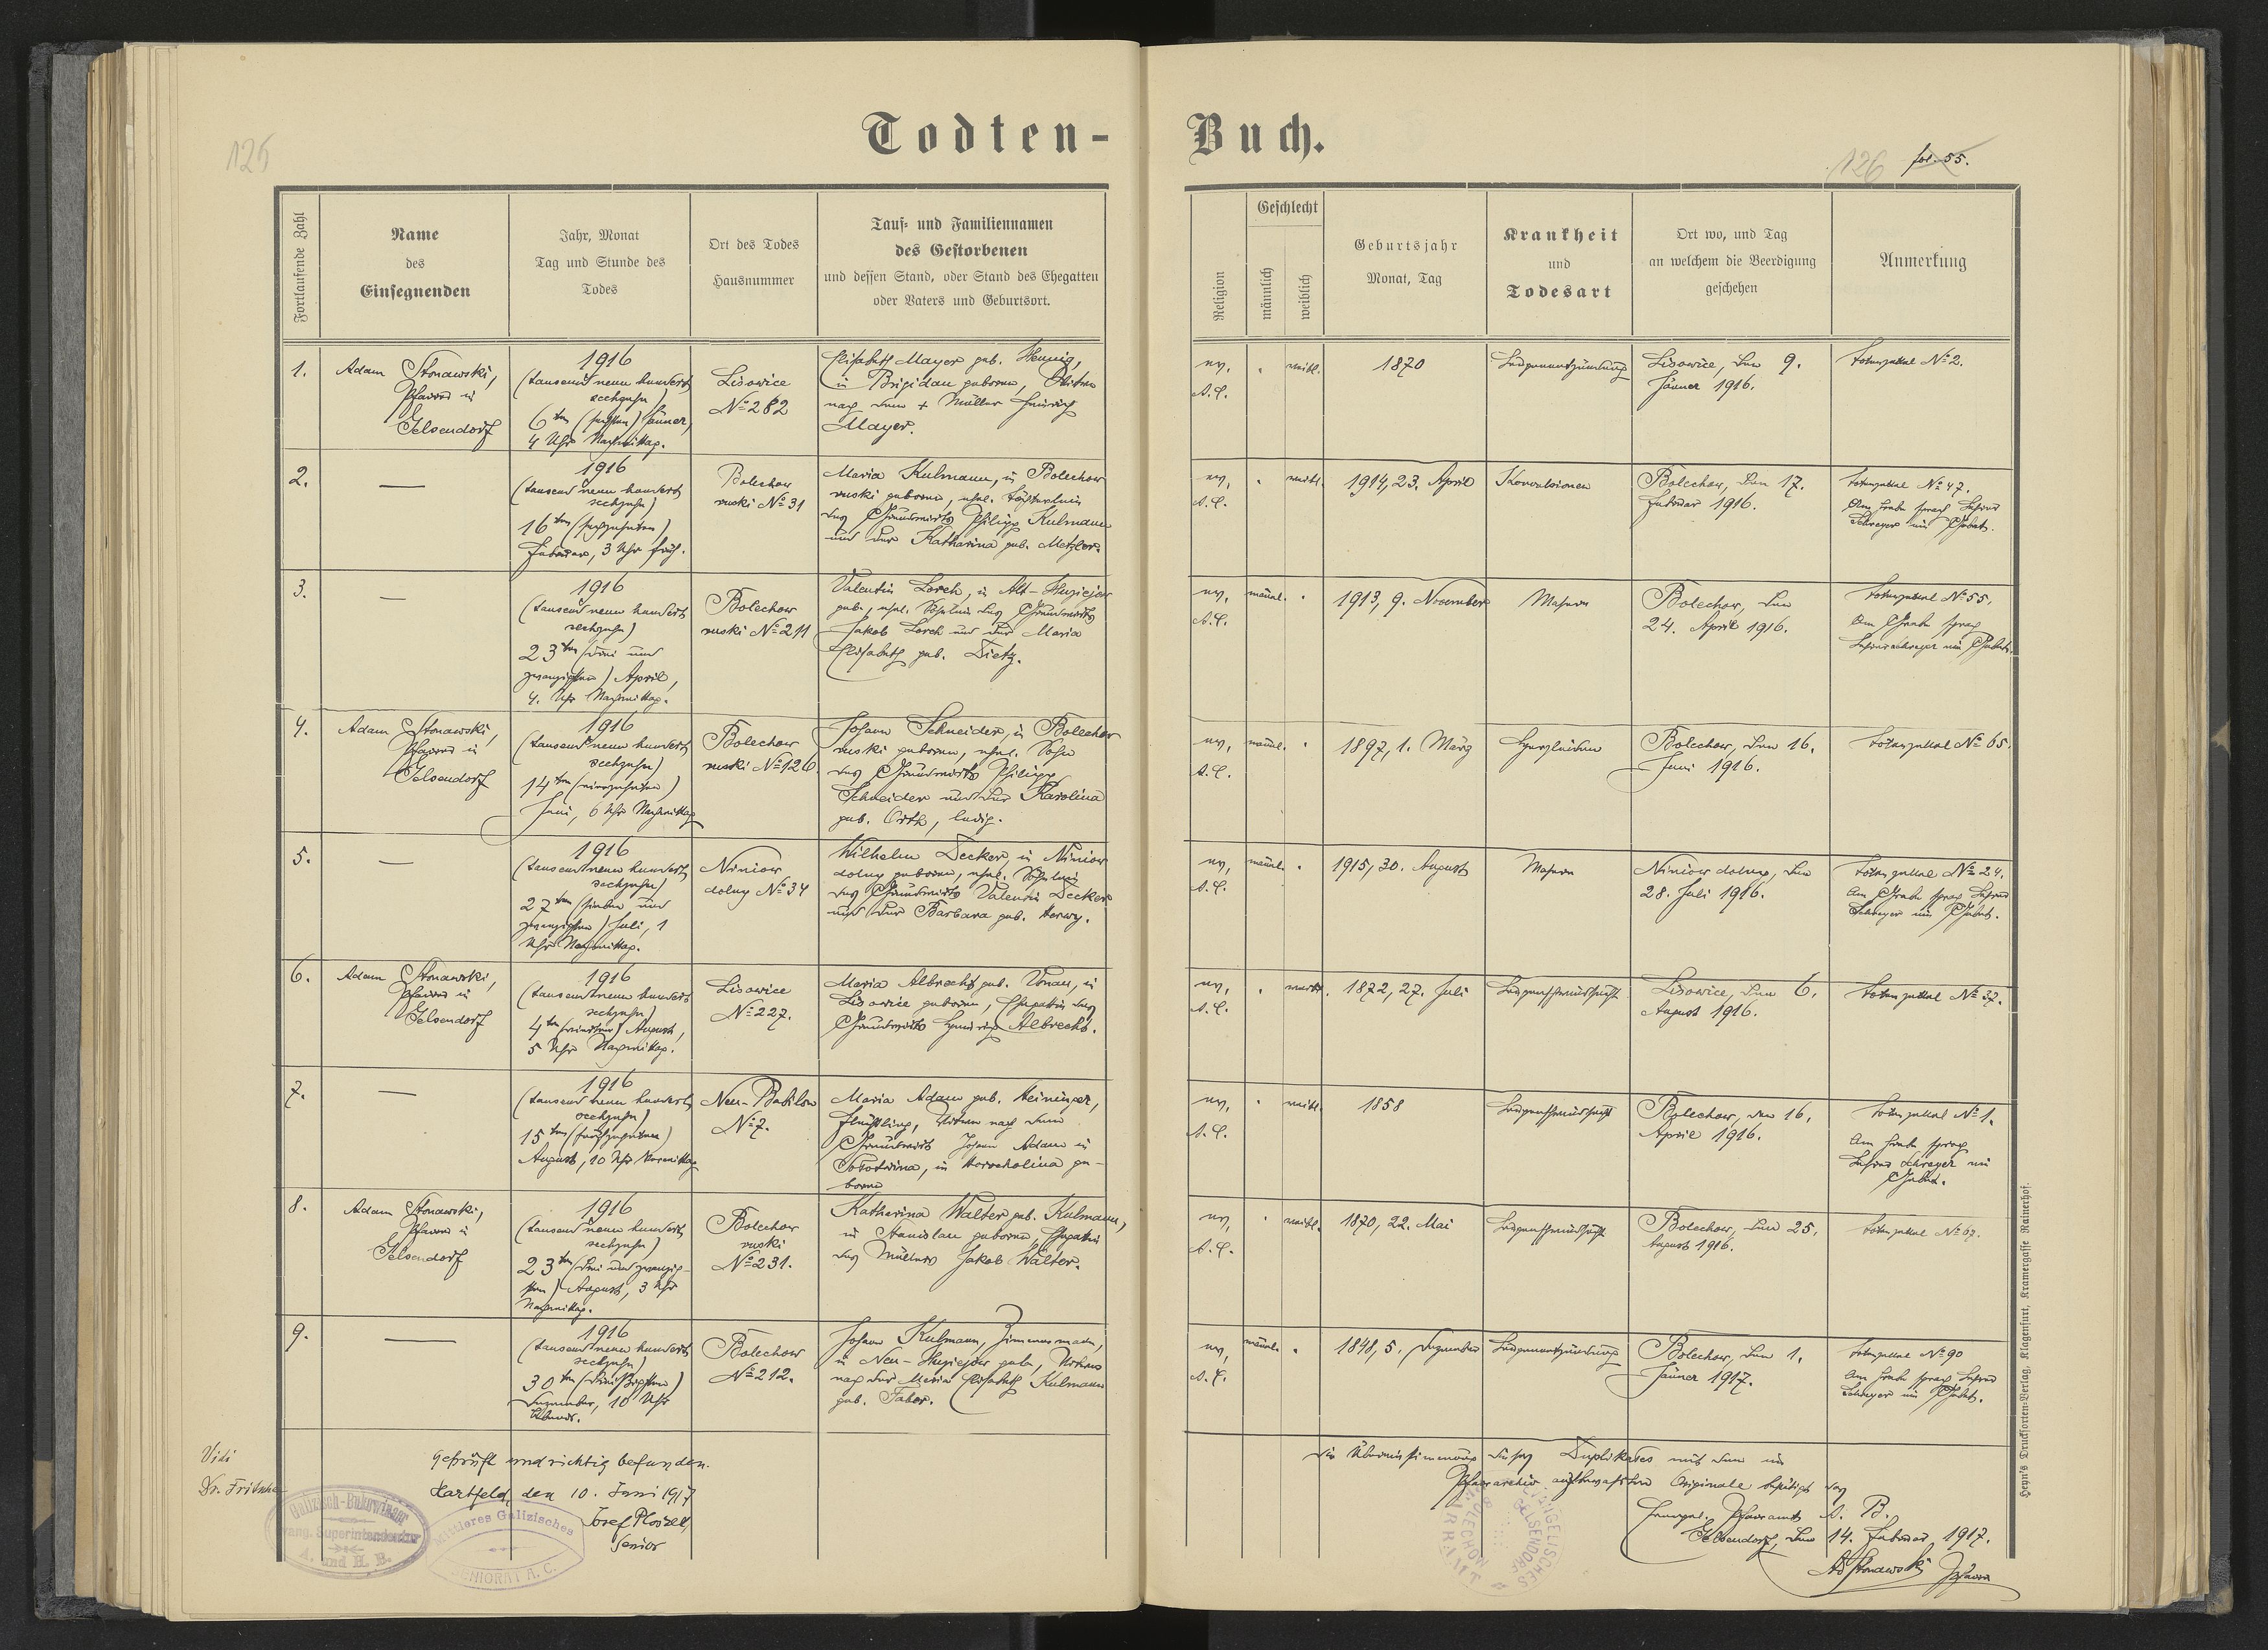 Todten-Buch.
125
126 fol. 55.
Fortlaufende Zahl
Name
des
Einsegnenden
Jahr, Monat
Tag und Stunde des
Todes
Ort des Todes
Hausnummer
Tauf- und Familiennamen
des Gestorbenen
und dessen Stand, oder Stand des Ehegatten
oder Vaters und Geburtsort.
Religion
Geschlecht
männlich
weiblich
Geburtsjahr
Monat, Tag
Krankheit
und
Todesart
Ort wo, und Tag
an welchem die Beerdigung
geschehen
Anmerkung
1.
Adam Stonawski,
Pfarrer in
Gelsendorf
1916
(tausend neun hundert
sechzehn)
6ten (sechsten) Jänner,
4 Uhr Nachmittag.
Lisowice
No 282
Elisabeth Mayer geb. Hennig,
in Brigidau geboren, Witwe
nach dem + Müller Heinrich
Mayer.
ev.
A.C.
"
weibl.
1870
Lungenentzündung
Lisowice, den 9.
Jänner 1916.
Totenzettel No 2.
2.
—
1916
(tausend neun hundert
sechzehn)
16ten (sechzehnten)
Februar, 3 Uhr früh.
Bolechow
ruski No 31
Maria Kulmann, in Bolechow
ruski geboren, ehel. Töchterlein
des Grundwirts Philipp Kulmann
und der Katharina geb. Metzler.
ev.
A.C.
"
weibl.
1914, 23. April
Konvulsionen
Bolechow, den 17.
Februar 1916.
Totenzettel No 47.
Am Grabe sprach Lehrer
Schreyer ein Gebet.
3.
—
1916
(tausend neun hundert
sechzehn)
23ten (drei und
zwanzigsten) April,
4. Uhr Nachmittag.
Bolechow
ruski No 211
Valentin Lorch, in Alt-Huziejow
geb., ehel. Söhnlein des Grundwirts
Jakob Lorch und der Maria
Elisabeth geb. Dietz.
ev.
A.C.
männl.
"
1913, 9. November
Masern
Bolechow, den
24. April 1916.
Totenzettel No 55.
Am Grabe sprach
Lehrer Schreyer ein Gebet.
4.
Adam Stonawski,
Pfarrer in
Gelsendorf
1916
(tausend neun hundert
sechzehn)
14ten (vierzehnten)
Juni, 6 Uhr Nachmittag
Bolechow
ruski No 126.
Johann Schneider, in Bolechow
ruski geboren, ehel. Sohn
des Grundwirts Philipp
Schneider und der Karolina
geb. Orth, ledig.
ev.
A.C.
männl.
"
1897, 1. März
Herzleiden
Bolechow, den 16.
Juni 1916.
Totenzettel No 65.
5.
—
1916
(tausend neun hundert
sechzehn)
27ten (sieben und
zwanzigsten) Juli, 1
Uhr Nachmittag.
Niniow
dolny No 34
Wilhelm Decker, in Niniow
dolny geboren, ehel. Söhnlein
des Grundwirts Valentin Decker
und der Barbara geb. Herwy.
ev.
A.C.
männl.
"
1915, 30. August
Masern
Niniow dolny, den
28. Juli 1916.
Totenzettel No 24.
Am Grabe sprach Lehrer
Schreyer ein Gebet.
6.
Adam Stonawski,
Pfarrer in
Gelsendorf
1916
(tausend neun hundert
sechzehn)
4ten (vierten) August,
5 Uhr Nachmittag.
Lisowice
No 227.
Maria Albrecht geb. Unau, in
Lisowice geboren, Ehegattin des
Grundwirts Heinrich Albrecht.
ev.
A.C.
"
weibl.
1872, 27. Juli
Lungenschwindsucht
Lisowice, den 6.
August 1916.
Totenzettel No 37.
7.
—
1916
(tausend neun hundert
sechzehn)
15ten (fünfzehnten)
August, 10 Uhr Vormittag
Neu-Babilon
No 7.
Maria Adam geb. Heininger,
Flüchtling, Witwe nach dem
Grundwirt Johann Adam in
in Horocholina ge-
boren
ev.
A.C.
"
weibl.
1858
Lungenschwindsucht
Bolechow, den 16.
April 1916.
Totenzettel No 1.
Am Grabe sprach
Lehrer Schreyer ein
Gebet.
8.
Adam Stonawski,
Pfarrer in
Gelsendorf
1916
(tausend neun hundert
sechzehn)
23ten (drei und zwanzig-
sten) August, 3 Uhr
Nachmittag.
Bolechow
ruski
No 231.
Katharina Walter geb. Kulmann,
in Stanislau geboren, Ehegattin
des Müllers Jakob Walter.
ev.
A.C.
"
weibl.
1870, 22. Mai
Lungenschwindsucht
Bolechow, den 25.
August 1916.
Totenzettel No 67.
9.
—
1916
(tausend neun hundert
sechzehn)
30ten (dreißigsten)
Dezember, 10 Uhr
Abends.
Bolechow
No 212.
Johann Kulmann, Zimmermann,
in Neu-Huziejow geb., Witwer
nach der Maria Elisabeth Kulmann
geb. Faber.
ev.
A.C.
männl.
"
1848, 5. Dezember
Lungenentzündung
Bolechow, den 1.
Jänner 1917.
Totenzettel No 90
Am Grabe sprach Lehrer
Schreyer ein Gebet.
Vidi
Dr. Fritsche
Geprüft und richtig befunden.
Hartfeld, den 10. Juni 1917
Josef Ploszek,
Senior
Galizisch-Bukowinaer
evang. Superintendentur
A. und H. B.
Mittleres Galizisches
SENIORAT A. C.
Die Übereinstimmung dieses Duplikates mit dem im
Pfarrarchiv aufbewahrten Originale bestätigt das
Evangel. Pfarramt A. B.
Gelsendorf, den 14. Februar 1917.
AdStonawski Pfarrer
EVANGELISCHES
GELSENDORF
BOLECHOW
PFARRAMT
Heyn's Drucksorten-Verlag, Klagenfurt, Kramergasse Rainerhof.